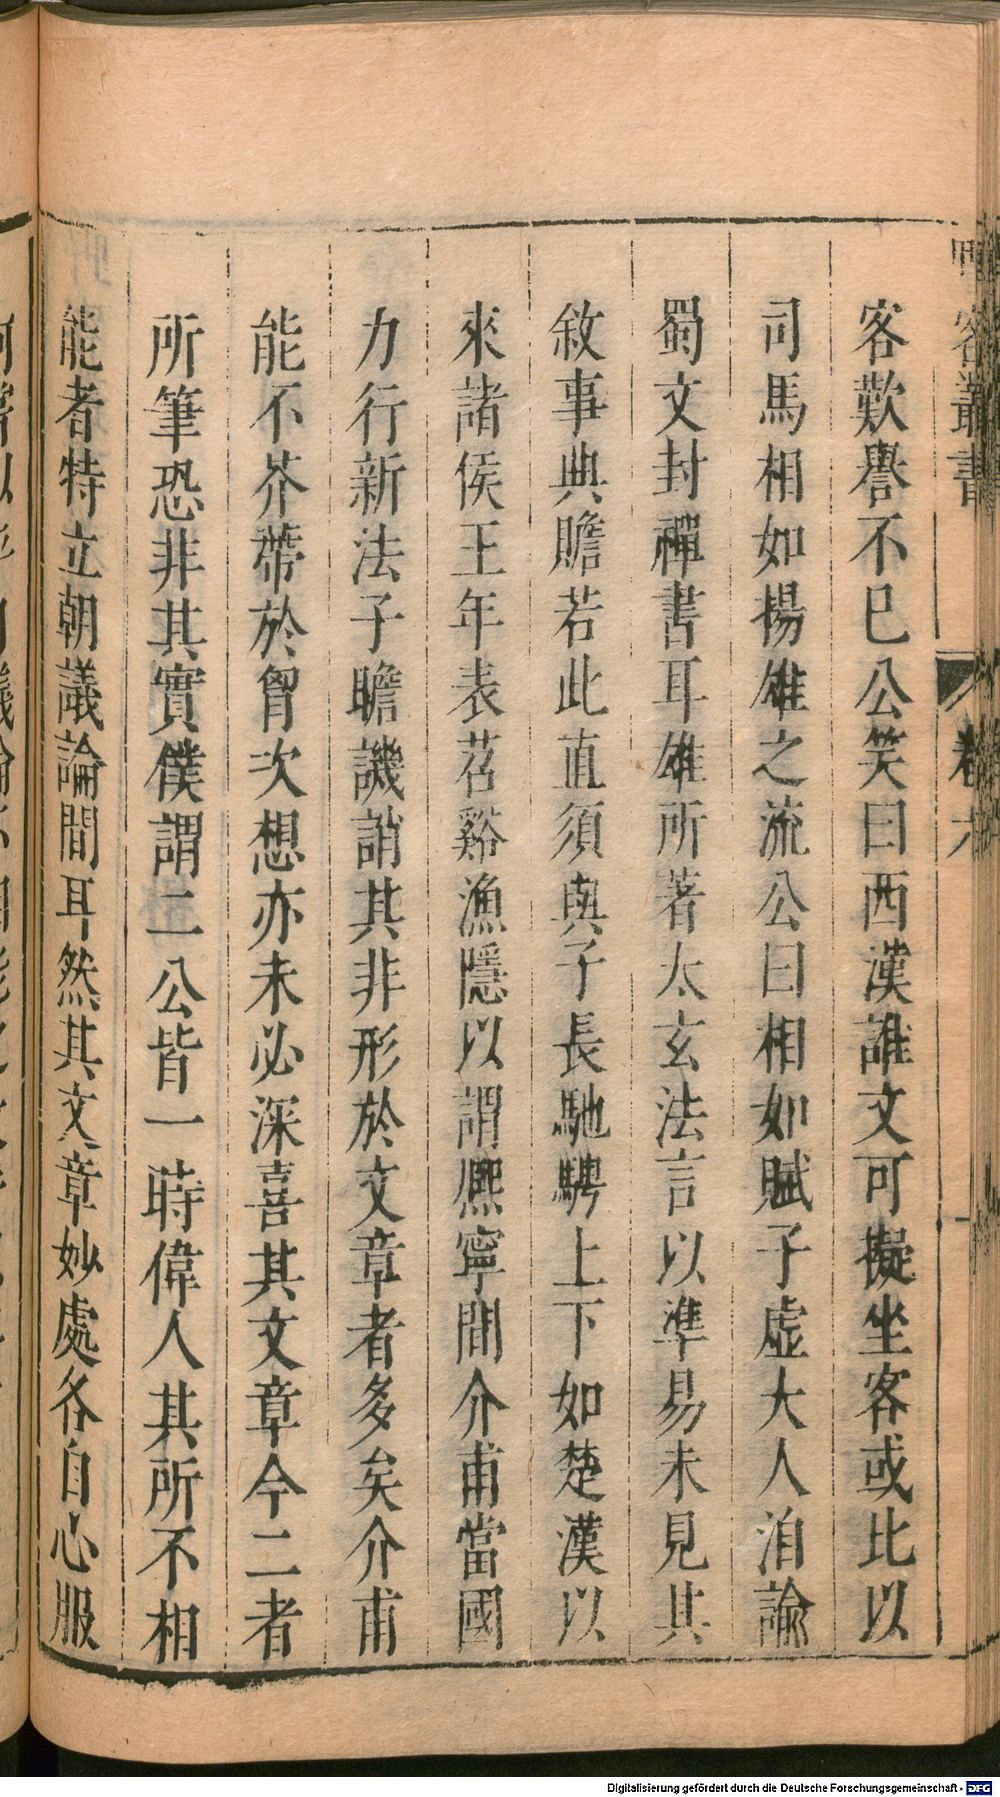 客叢書
卷六
客歎譽不已公笑曰西漢誰文可擬坐客或比以
司馬相如揚雄之流公曰相如賦子虛大人洎諭
蜀文封禪書耳雄所著太玄法言以準易未見其
敘事典贍若此直須與子長馳騁上下如楚漢以
來諸侯王年表苕谿漁隱以謂熈寧間介甫當國
力行新法子瞻譏誚其非形於文章者多矣介甫
能不芥帶於胷次想亦未必深喜其文章今二者
所筆恐非其實僕謂二公皆一時偉人其所不相
能者特立朝議論間耳然其文章妙處各自心服
Digitalisierung gefördert durch die Deutsche Forschungsgemeinschaft - DFG